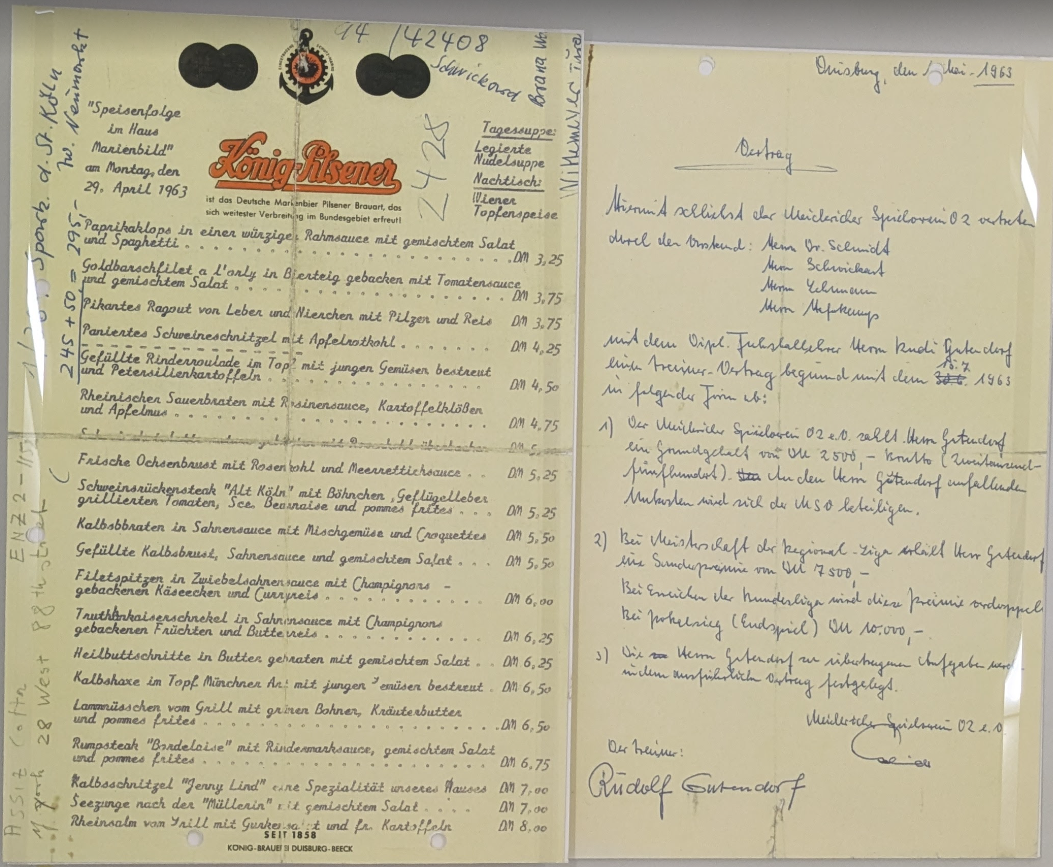 94 /42408
Schwickord
2428
245 + 50 = 295,-
Spark. d. St. Köln
Zw. Neumarkt
28 West 88th street
"Speisenfolge
im Haus
Marienbild"
am Montag, den
29. April 1963
König-Pilsener
ist das Deutsche Markenbier Pilsener Brauart, das
sich weitester Verbreitung im Bundesgebiet erfreut!
Tagessuppe:
Legierte
Nudelsuppe
Nachtisch:
Wiener
Topfenspeise
Paprikaklops in einer würzigen Rahmsauce mit gemischtem Salat
und Spaghetti . . . DM 3,25
Goldbarschfilet a l'orly in Bierteig gebacken mit Tomatensauce
und gemischtem Salat . . . DM 3,75
Pikantes Ragout von Leber und Nierchen mit Pilzen und Reis DM 3,75
Paniertes Schweineschnitzel mit Apfelrotkohl . . . DM 4,25
Gefüllte Rinderroulade im Topf mit jungen Gemüsen bestreut
und Petersilienkartoffeln . . . DM 4,50
Rheinischen Sauerbraten mit Rosinensauce, Kartoffelklößen
und Apfelmus . . . DM 4,75
Frische Ochsenbrust mit Rosenkohl und Meerrettichsauce . . DM 5,25
Schweinsrückensteak "Alt Köln" mit Böhnchen, Geflügelleber
grillierten Tomaten, Sce. Bearnaise und pommes frites . . . DM 5,25
Kalbsbbraten in Sahnensauce mit Mischgemüse und Croquettes DM 5,50
Gefüllte Kalbsbrust, Sahnensauce und gemischtem Salat . . DM 5,50
Filetspitzen in Zwiebelsahnensauce mit Champignons –
gebackenen Käseecken und Curryreis . . . DM 6,00
Truthahnkaiserschnekel in Sahnensauce mit Champignons
gebackenen Früchten und Butterreis . . . DM 6,25
Heilbuttschnitte in Butter gebraten mit gemischtem Salat . . DM 6,25
Kalbshaxe im Topf Münchner Art mit jungen Gemüsen bestreut . DM 6,50
Lammrüsschen vom Grill mit grünen Bohnen, Kräuterbutter
und pommes frites . . . DM 6,50
Rumpsteak "Bordelaise" mit Rindermarksauce, gemischtem Salat
und pommes frites . . . DM 6,75
Kalbsschnitzel "Jenny Lind" eine Spezialität unseres Hauses DM 7,00
Seezunge nach der "Müllerin" mit gemischtem Salat . . . DM 7,00
Rheinsalm vom Grill mit Gurkensalat und fr. Kartoffeln DM 8,00
SEIT 1858
KÖNIG-BRAUEREI DUISBURG-BEECK
Duisburg, den Mai 1963
Vertrag
Hiermit schließt der Meidericher Spielverein 02 vertreten
durch den Vorstand: Herrn Dr. Schmidt
Herrn Schwickert
Herrn Lehmann
Herrn
mit dem Dipl. Fußballlehrer Herrn Rudi Gutendorf
15.7
einen Trainer-Vertrag beginnend mit dem 1963
in folgender Form ab:
1) Der Meidericher Spielverein 02 e.V. zahlt Herrn Gutendorf
ein Grundgehalt von DM 2500,- brutto (Zweitausend-
fünfhundert). An den Herrn Gutendorf anfallenden
Unkosten wird sich der MSV beteiligen.
2) Bei Meisterschaft der Regional-Liga erhält Herr Gutendorf
eine Sonderprämie von DM 7500,-
Bei Erreichen der Bundesliga wird diese Prämie verdoppelt
Bei Pokalsieg (Endspiel) DM 10.000,-
3) Die Herrn Gutendorf zu übertragenen Aufgaben werden
in dem ausführlichen Vertrag festgelegt.
Meidericher Spielverein 02 e.V.
Der Trainer:
Rudolf Gutendorf